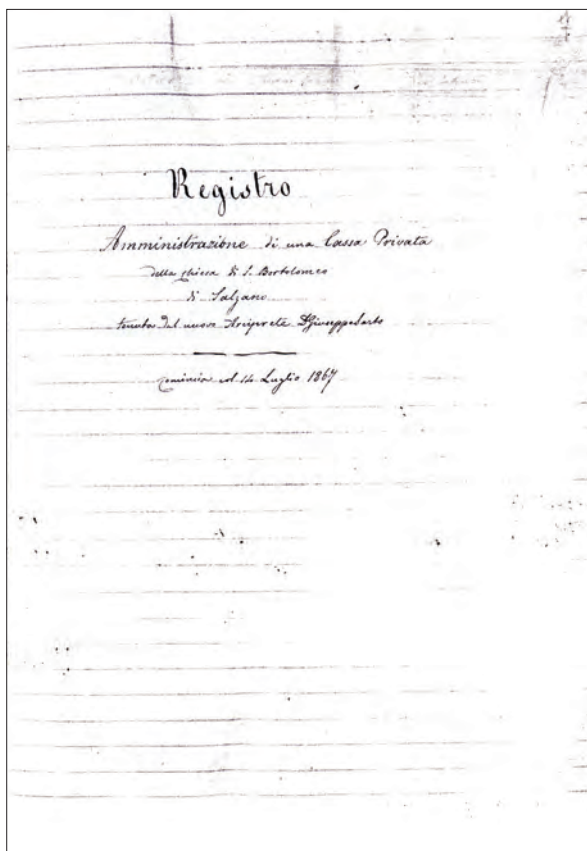 Registro
Amministrazione di una Cassa Privata
della chiesa di S. Bortolomeo
di Salzano
tenuta dal nuovo Arciprete D Giuseppe Sarto
Comincia col 14 Luglio 1867